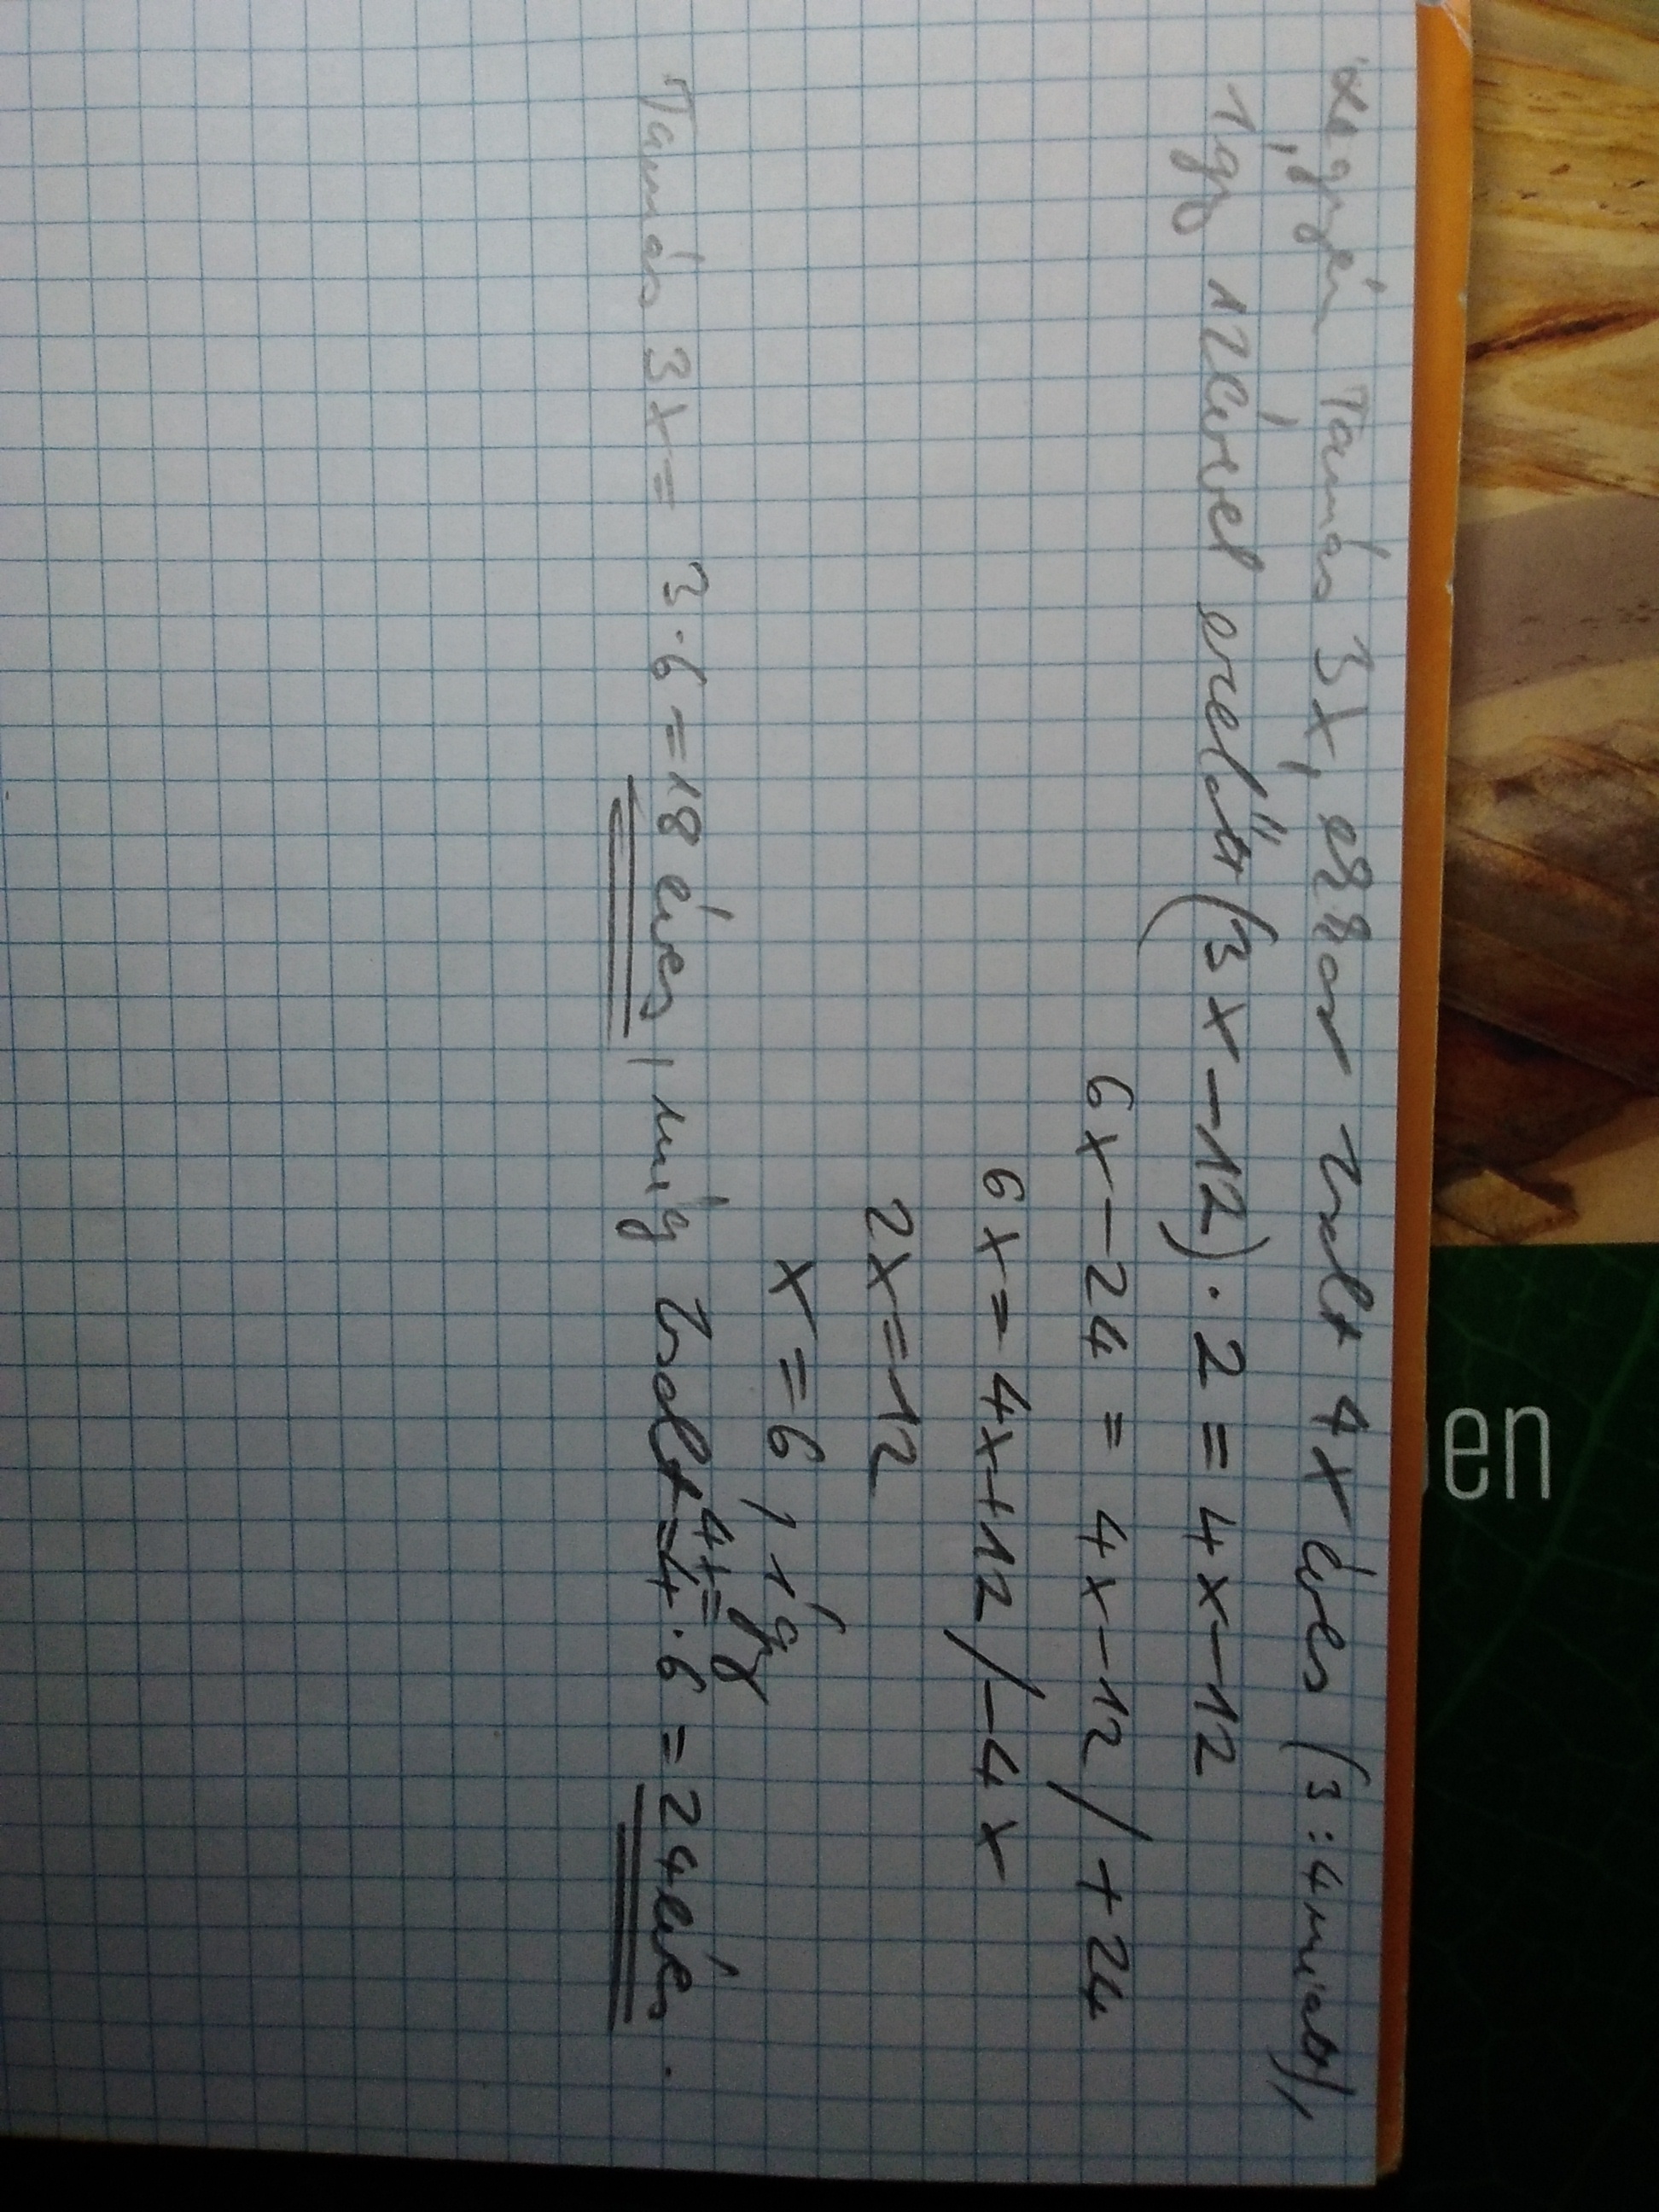 Legyen Tamás 3x, ekkor Zsolt 4x éves (3:4 miatt),
Így 12 évvel ezelőtt (3x-12)·2=4x-12
6x-24=4x-12/+24
6x=4x+12/-4x
2x=12
x=6, így
Tamás 3x= 3·6=18 éves, míg Zsolt 4x= 4·6=24 éves.
en